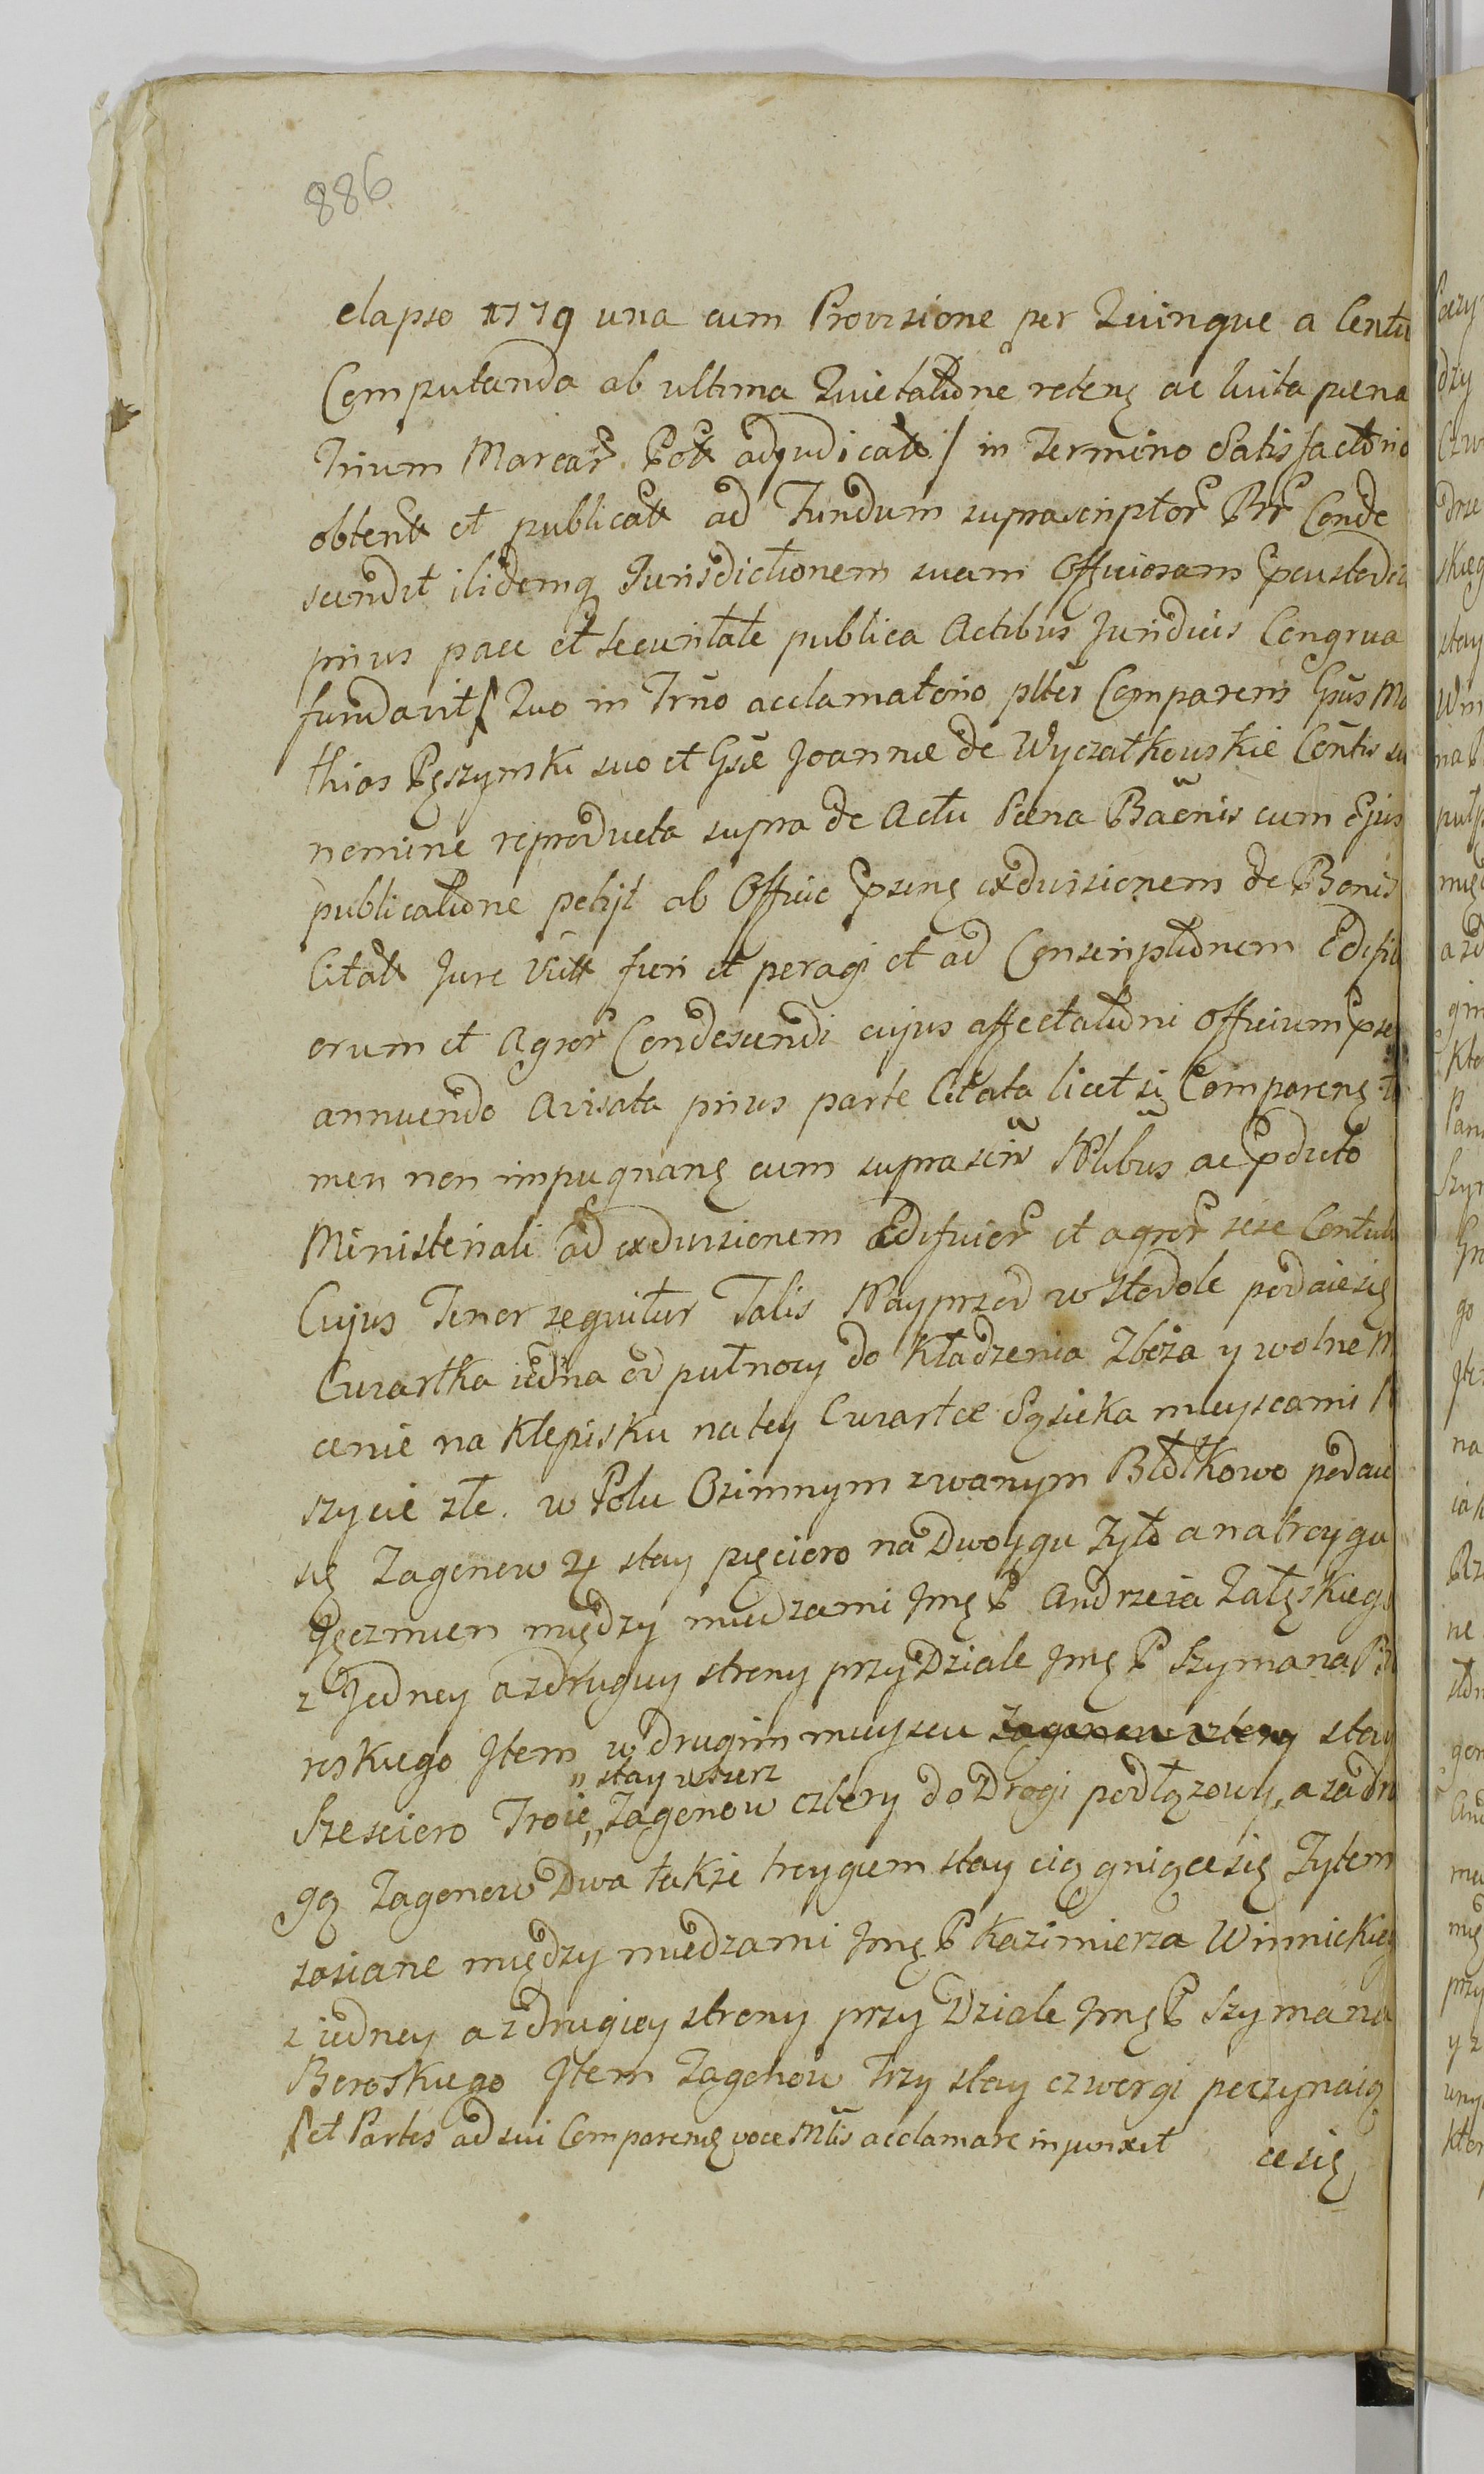 886
elapso 1779 una cum Provisione per Quinque a Centu
Computanda ab ultima Quietatione retens ac luita paena
Trium Marcar. Pol adjudicat / in Termino Satisfactorio
obtent et publicat ad Fundum suprascriptor Brr Conde
scendit ibidemq Jurisdictionem suam Officiosam
prius pace et securitate publica Actibus Juridicis Congrua
fundavit Quo in Trno acclamatorio plter Comparens Gsus Ma
thias Pęszynski suo et Gsæ Joannæ de Wyczałkowskie Contis su
nomine reproducta supra de Actu Pæna Baënis cum Ejus
publicatione petijt ab Offic psens exdivisionem de Bonis
Citat Jure Vict fieri et peragi et ad Conscriptionem Edific
orum et Agror Condescendi cujus affectationi Officium pse
annuendo avisata prius parte Citata licet si Comparens ta
men non impugnans cum suprascri Nlibus ac pdicto
Ministeriali ad exdivisionem Edificior et agror sese Contul
Cujus Tenor sequitur Talis Nayprzod w Stodole podaie się
Cwartka iedna od pułnocy do Kładzenia Zboża y wolne M
cenie na Klepisku na tey Cwartce Sąsieka mieyscami P
szycie złe. w Polu Ozimnym zwanym Błotkowo podaie
się Zagonow 4 stay pięcioro na Dwoygu Zyto a na troygu
Jęczmien między miedzami Jmę P Andrzeia Załęskiego
z Jedney a zdruguy strony przy Dziale Jmę P Szymana B
roskiego Jtem w drugim mieyscu stay
„ stay wszerz
Szescioro Troie „ Zagonow cztery do Drogi podłązowy, a za dru
gą Zagonow Dwa także troygiem stay ciągniące się Zytem
zasiane między miedzami Jmę P Kazimierza Winnickieg
z iedney a zdrugiey strony przy Dziale Jmę P Szymana
Boroskiego Jtem Zagonow Trzy stay czworgi poczynaią
et Partes ad sui Comparens voce Mlis acclamare injunxit
ce się